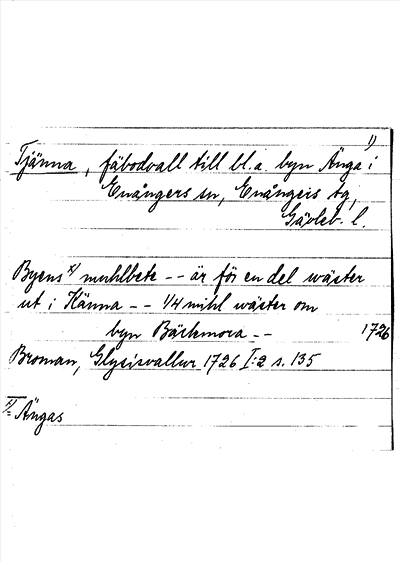 1)
Tjänna, fäbodvall till bl.a. byn Änga i
Enångers sn, Enångers tg,
Gävleb. l.
Byens x) muhlbete -- är för en del wäster
ut i Känna -- 1/4 mihl wäster om
byn Bäckmora -- 1726
Broman, Glysisvallur 1726 I:2 s. 135
x) = Ängas